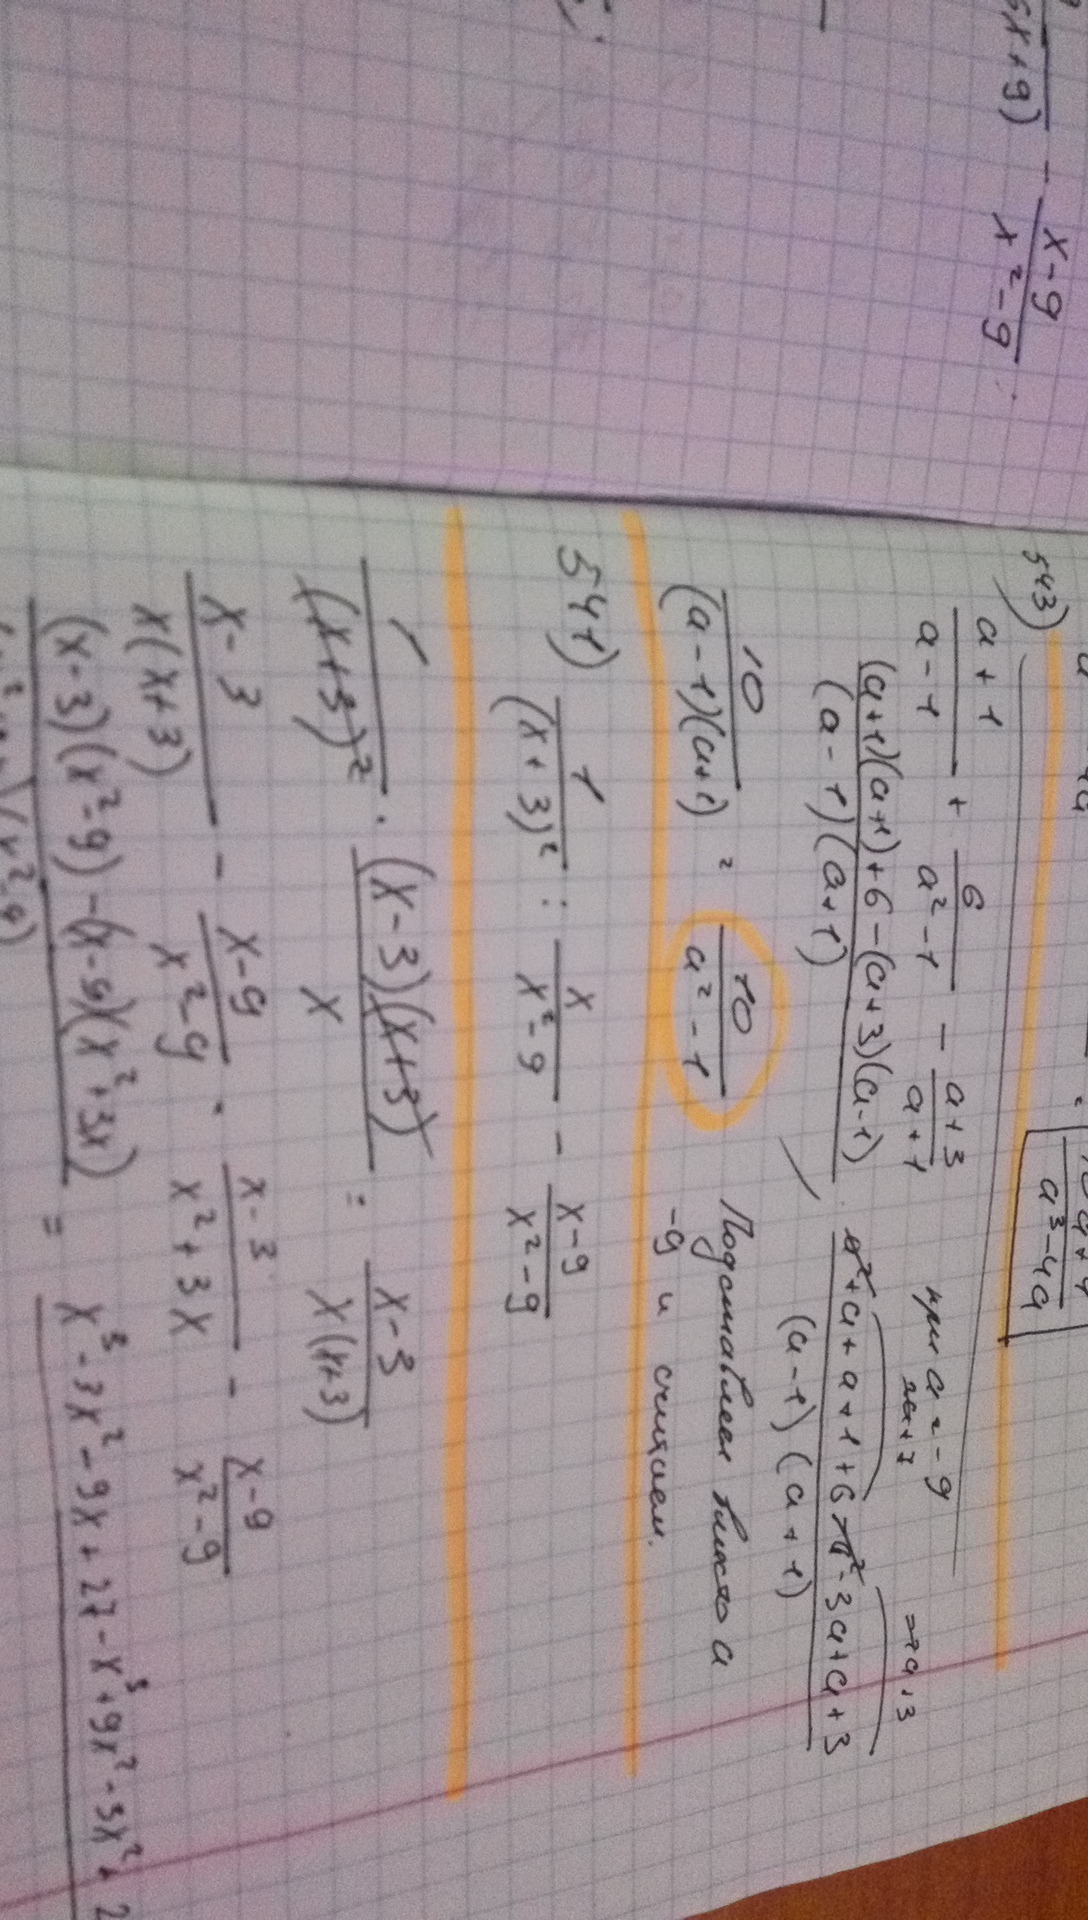 5x+9) - (x-9)/(x²-9) :
10a+4
a³-4a
543) (a+1)/(a-1) + 6/(a²-1) - (a+3)/(a+1) при a=-9
((a+1)(a+1)+6-(a+3)(a-1))/((a-1)(a+1)) (a²+a+a+1+6-a²-3a+a+3)/((a-1)(a+1))
10/((a-1)(a+1)) = 10/(a²-1) Подставляем вместо а
-9 и считаем.
544) 1/(x+3)² : x/(x²-9) - (x-9)/(x²-9)
1/(x+3)² · (x-3)(x+3)/x = (x-3)/(x(x+3))
(x-3)/(x(x+3)) - (x-9)/(x²-9) · (x-3)/(x²+3x) - (x-9)/(x²-9)
(x-3)(x²-9)-(x-9)(x²+3x) = x³-3x²-9x+27-x³+9x²-3x²+2